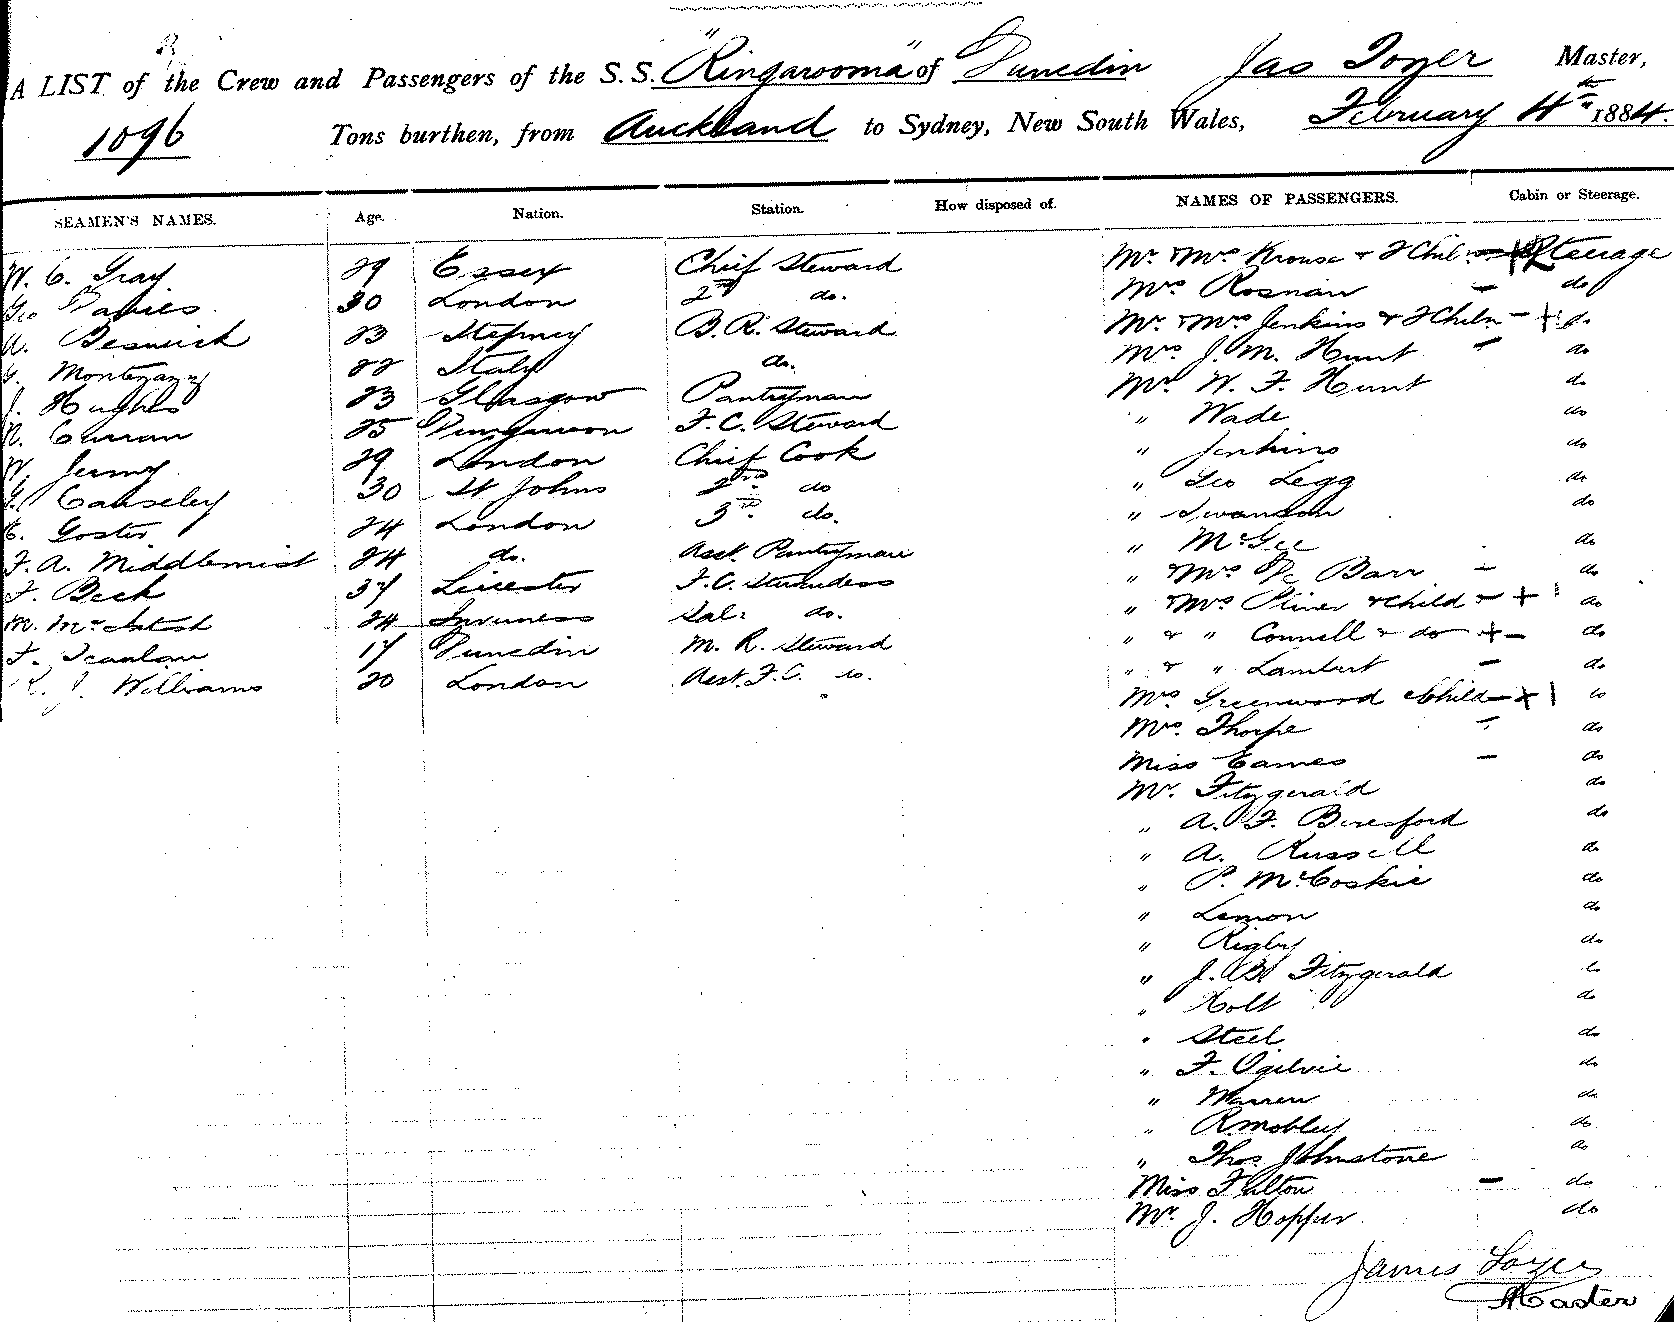 A LIST of the Crew and Passengers of the S.S. "Ringarooma" of Dunedin Jas Toyer Master,
1096 Tons burthen, from Auckland to Sydney, New South Wales, February 4th 1884.
SEAMEN'S NAMES. Age. Nation. Station. How disposed of. NAMES OF PASSENGERS. Cabin or Steerage.
W. C. Gray 29 Essex Chief Steward Mr. & Mrs Krouse & 2 Chil Steerage
Geo Davies 30 London 2nd do. Mrs Rosnan do
A. Beswick 23 Stepney B. R. Steward Mr. & Mrs Jenkins & 2 Chiln do
G. Montezazy 22 Italy do. Mrs J. M. Hunt do
J. Hughes 23 Glasgow Pantryman Mr. W. F. Hunt do
R. Curran 25 Dungarvon F. C. Steward " Wade do
W. Jermy 29 London Chief Cook " Jenkins do
G. Causeley 30 St Johns 2nd do " Geo Legg do
E. Goster 24 London 3rd do. " Swanson do
F. A. Middlemist 24 do. Asst. Pantryman " McGee do
F. Beck 37 Leicester F. C. Stewardess " & Mrs Barr do
M. McIntosh 24 Inverness Sal: do. " & Mrs Oliver & Child do
F. Scanlon 17 Dunedin M. R. Steward " & " Connell & do do
R. J. Williams 20 London Asst. F. C. do. " & " Lambert do
Mrs Greenwood & Child do
Mrs. Thorpe do
Miss Eames do
Mr. Fitzgerald do
" A. F. Beresford do
" A. Russell do
" P. McCoskie do
" Lemon do
" Rigby do
" J. B. Fitzgerald do
" Holt do
" Steel do
" F. Ogilvie do
" Warren do
" R. Mobley do
" Thos. Johnstone do
Miss Fulton do
Mr. J. Hopper do
James Toyer
Master